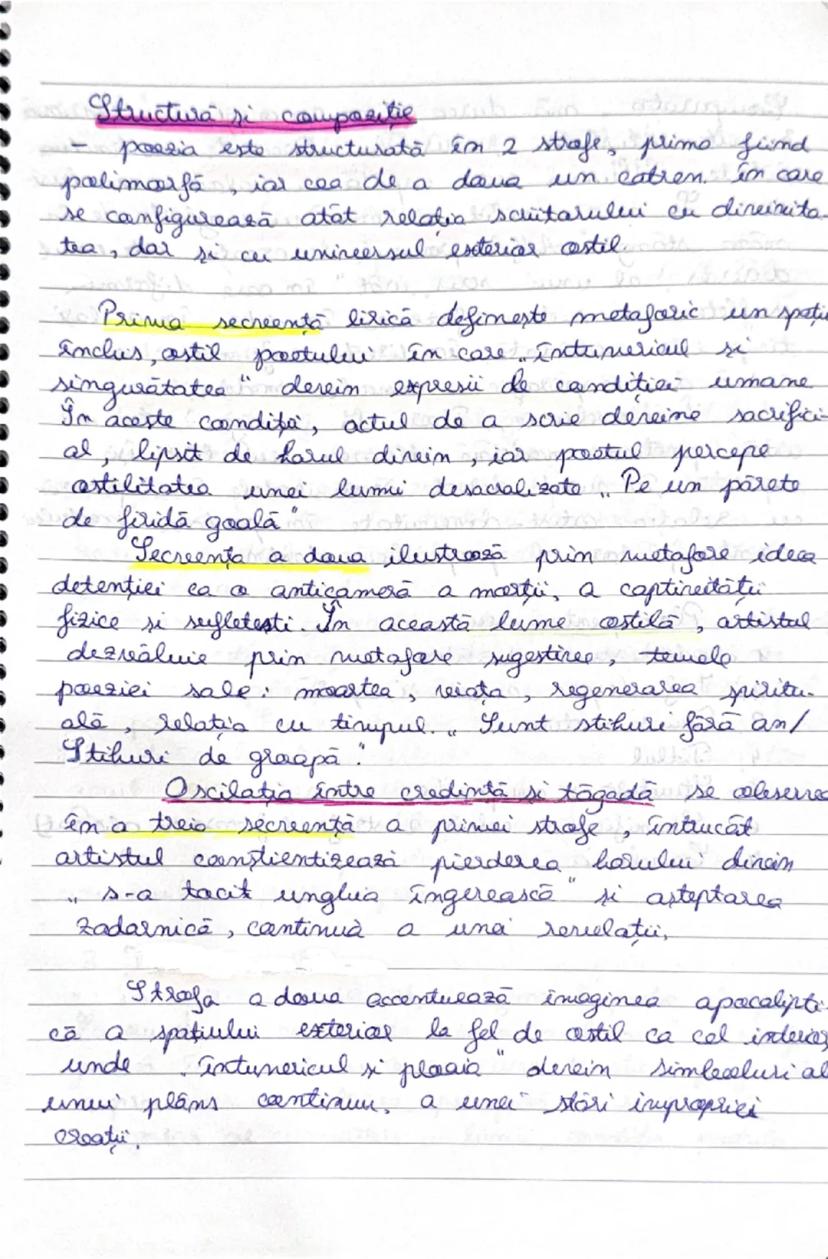 Structură și compoziție
- poezia este structurată în 2 strofe, prima fiind
polimorfă, iar cea de a doua un catren în care
se configurează atât relația scriitorului cu divinita-
tea, dar și cu universul exterior ostil
Prima secvență lirică definește metaforic un spațiu
închis, ostil poetului în care „întunericul și
singurătatea" devin expresii de condiției umane
În aceste condiții, actul de a scrie devine sacrifici-
al, lipsit de harul divin, iar poetul percepe
ostilitatea unei lumii desacralizate „Pe un părete
de firidă goală"
Secvența a doua ilustrează prin metafore ideea
detenției ca o anticameră a morții, a captivității
fizice și sufletești În această lume ostilă, artistul
dezvăluie prin metafore sugestive, temele
poeziei sale: moartea, viața, regenerarea spiritu-
ală, relația cu timpul. „Sunt stihuri fără an/
Stihuri de groapă."
Oscilația între credință și tăgadă se observă
în a treia secvență a primei strofe, întrucât
artistul conștientizează pierderea harului divin
„s-a tocit unghia îngerească" și așteptarea
zadarnică, continuă a unei revelații.
Strofa a doua accentuează imaginea apocalipti-
că a spațiului exterior la fel de ostil ca cel interior
unde „întunericul și ploaia" devin simboluri al
unui plâns continuu, a unei stări impropriei
creații.